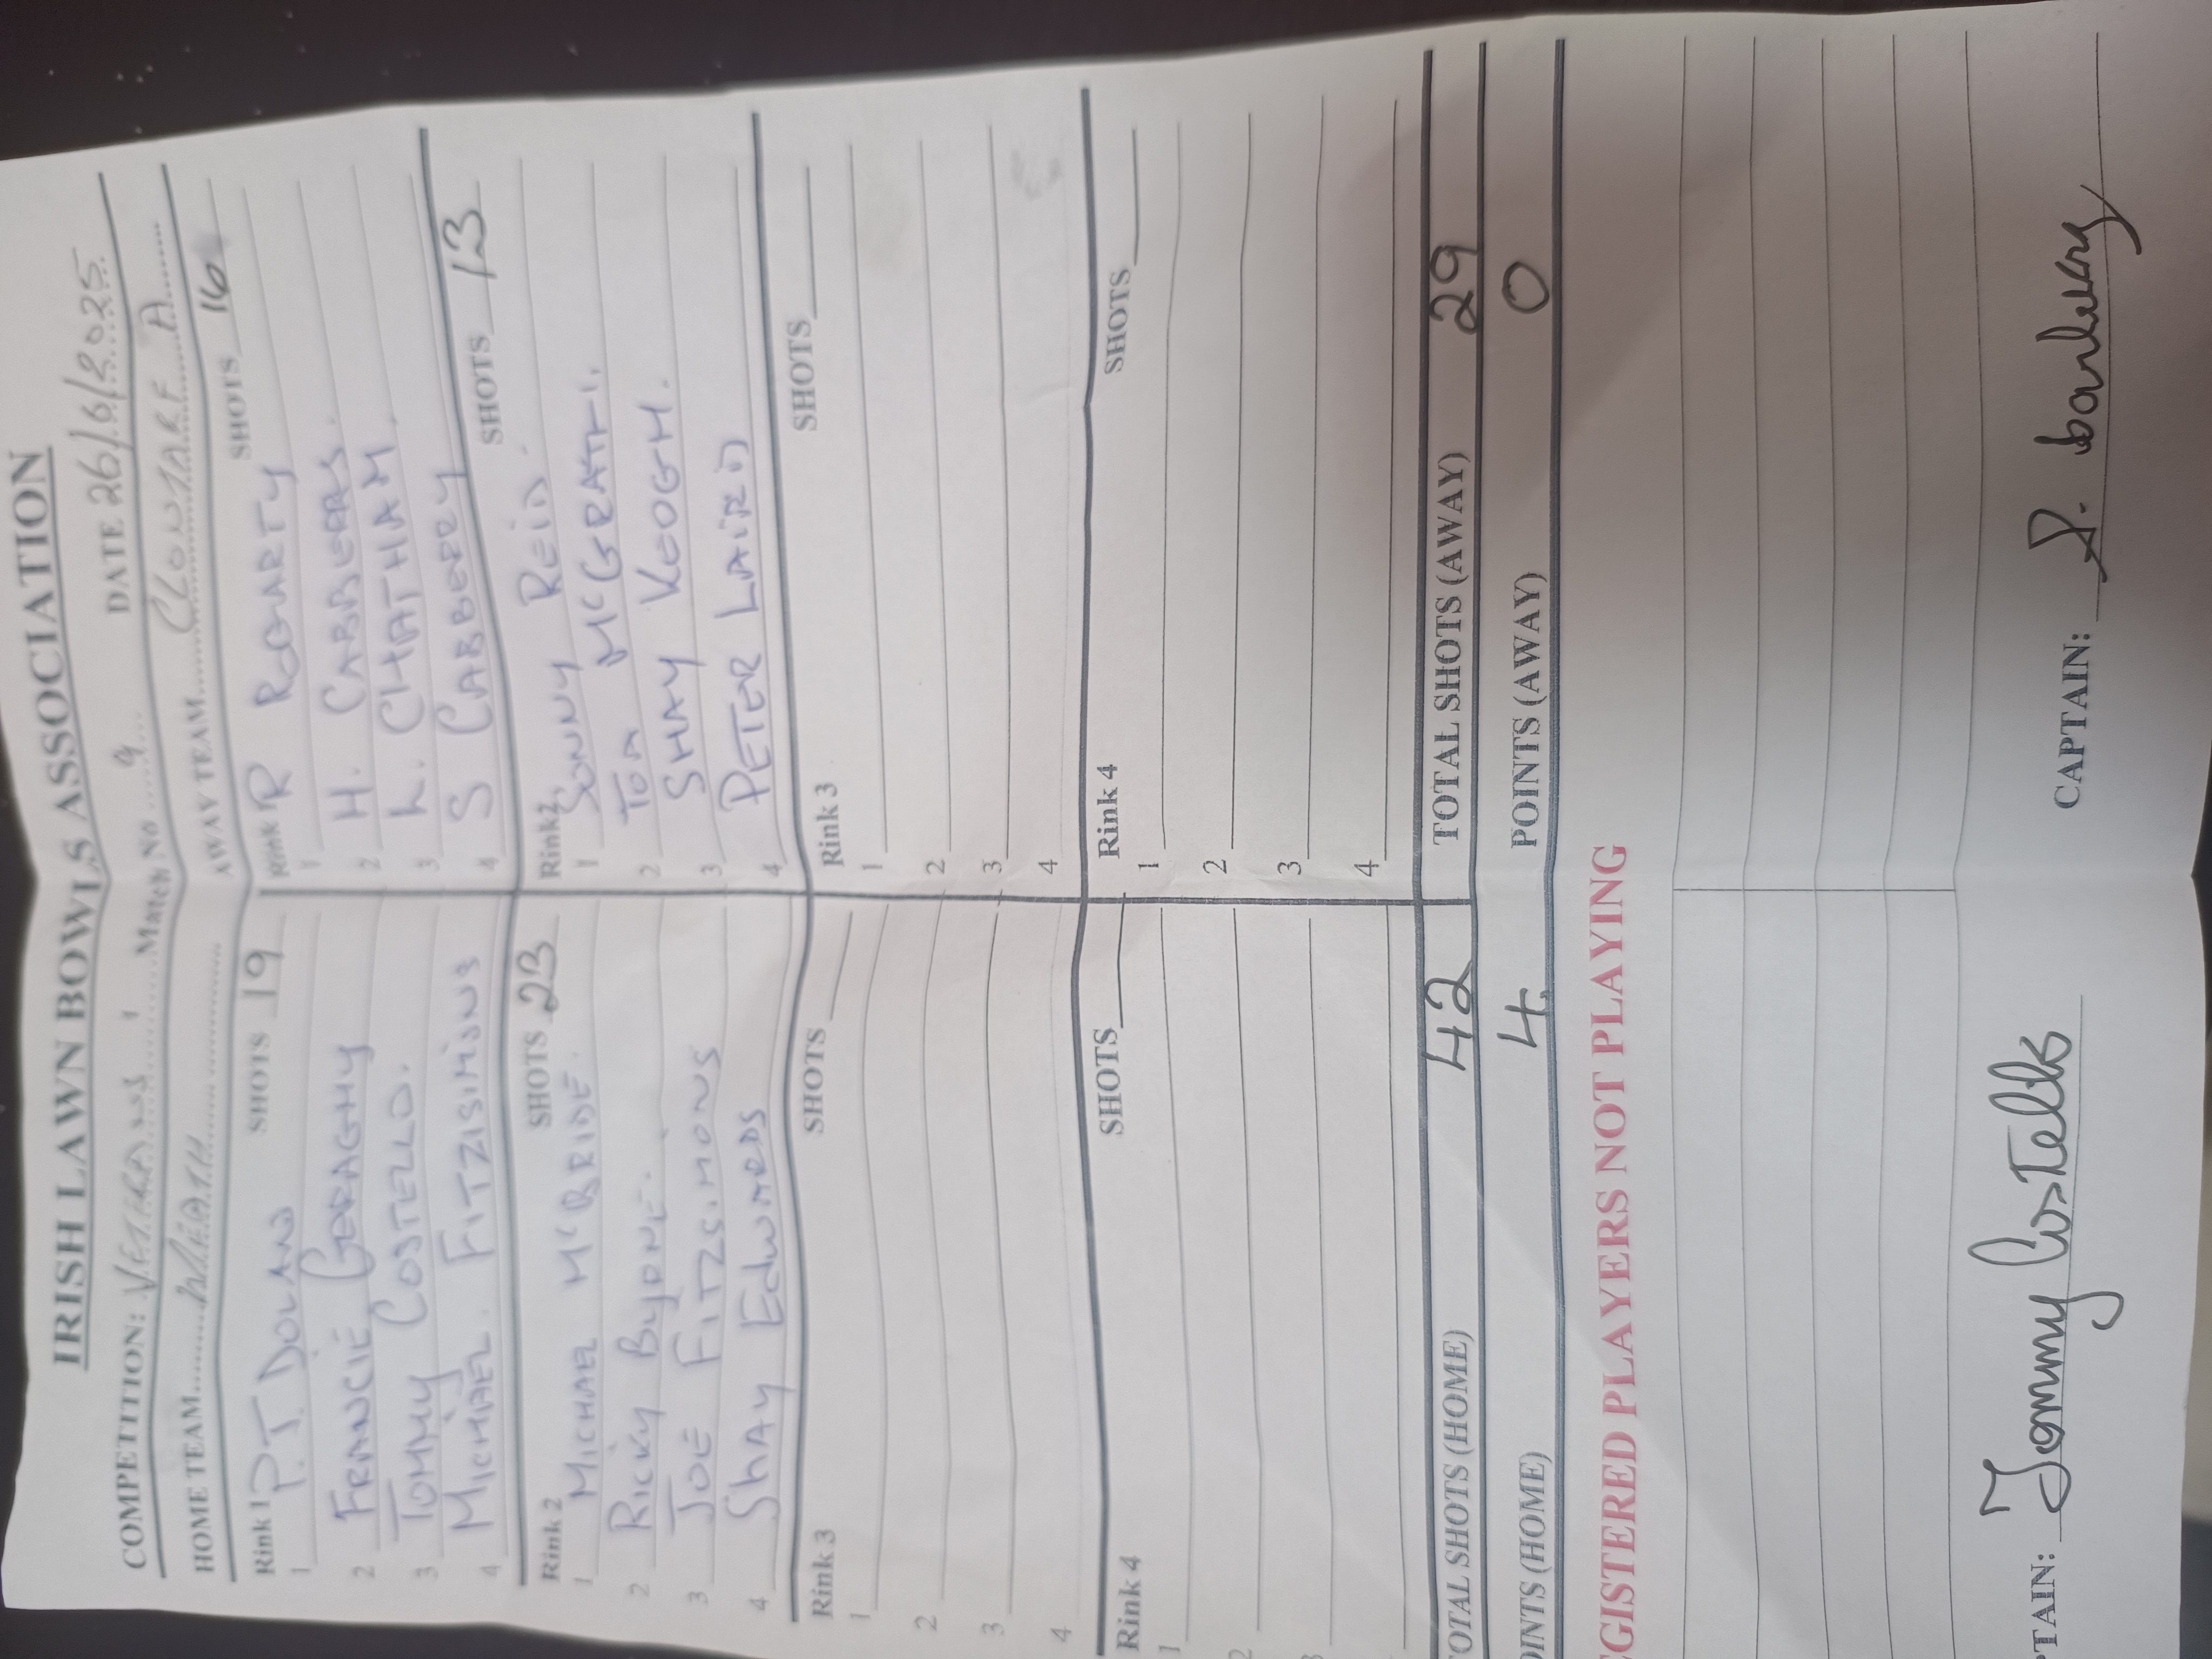 IRISH LAWN BOWLS ASSOCIATION
COMPETITION: VETERANS 1 Match No 9 DATE 26/6/2025
HOME TEAM MEATH AWAY TEAM CLONTARF A
Rink 1 SHOTS 19
1 P.T. DOLAN
2 FRANCIE GERAGHY
3 TOMMY COSTELLO.
4 MICHAEL. FITZISIMONS
Rink SHOTS 16
1 R ROGARTY
2 H. CABBERRY
3 L. CHATHAM.
4 S CABBERRY
Rink 2 SHOTS 23
1 MICHAEL McBRIDE.
2 RICKY BUYONE.
3 JOE FITZSIMONS
4 SHAY EDWARDS
Rink 2 SHOTS 13
1 SONNY REID.
2 TOM McGRATH.
3 SHAY KEOGH.
4 PETER LAIRD
Rink 3 SHOTS
1
2
3
4
Rink 3 SHOTS
1
2
3
4
Rink 4 SHOTS
1
2
3
Rink 4 SHOTS
1
2
3
4
OTAL SHOTS (HOME) 42 TOTAL SHOTS (AWAY) 29
OINTS (HOME) 4 POINTS (AWAY) 0
GISTERED PLAYERS NOT PLAYING
PTAIN: Tommy Costello CAPTAIN: S.